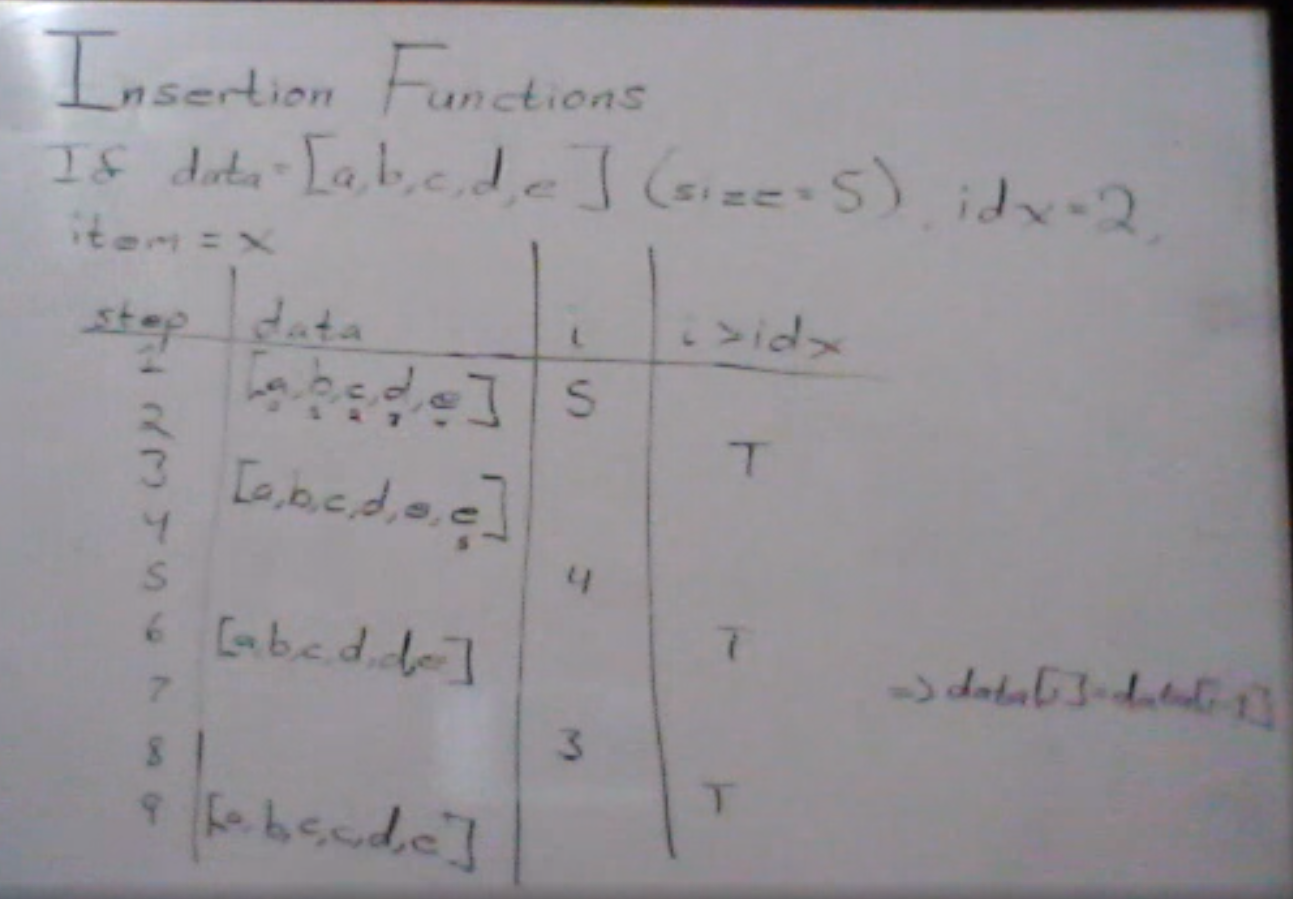 Insertion Functions
If data=[a,b,c,d,e] (size=5), idx=2,
item = x
step data i i>idx
1 [a,b,c,d,e] 5
2 T
3 [a,b,c,d,e,e]
4
5 4
6 [a,b,c,d,d,e] T
7 => data[i]=data[i-1]
8 3
9 [a,b,c,c,d,e] T